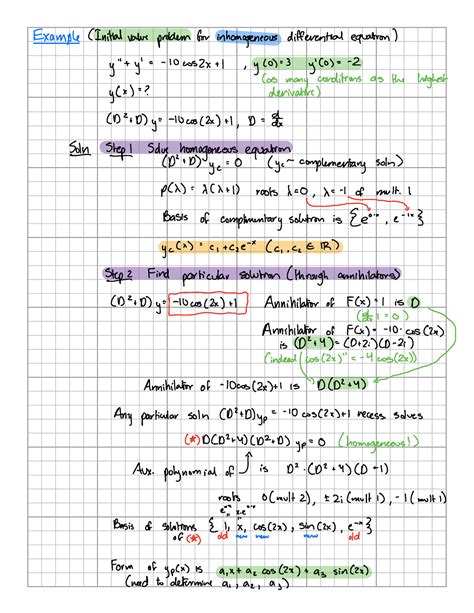 Example (Initial value problem for inhomogeneous differential equation)
y'' + y' = -10 cos2x + 1 , y(0) = 3 y'(0) = -2
y(x) = ? (as many conditions as the highest
derivative)
(D²+D) y = -10 cos(2x) + 1 , D = d/dx
Soln Step 1 Solve homogeneous equation
(D²+D) yc = 0 (yc ~ complementary soln)
p(λ) = λ(λ+1) roots λ=0 , λ=-1 of mult. 1
Basis of complimentary solution is {e^0·x , e^-1x}
yc(x) = c₁ + c₂e^-x (c₁, c₂ ∈ ℝ)
Step 2 Find particular solution (through annihilators)
(D²+D) y = -10 cos(2x) + 1 Annihilator of F(x) = 1 is D
(d/dx 1 = 0)
Annihilator of F(x) = -10·cos(2x)
is (D²+4) = (D+2i)(D-2i)
(indeed cos(2x)'' = -4 cos(2x))
Annihilator of -10cos(2x)+1 is D(D²+4)
Any particular soln (D²+D)yp = -10 cos(2x)+1 necess solves
(*) D(D²+4)(D²+D) yp = 0 (homogeneous!)
Aux. polynomial of is D²·(D²+4)(D-1)
roots 0 (mult 2), ±2i (mult 1), -1 (mult 1)
Basis of solutions {1, x, cos(2x), sin(2x), e^-x}
of (*) old new new new old
Form of yp(x) is a₁x + a₂ cos(2x) + a₃ sin(2x)
(need to determine a₁, a₂, a₃)